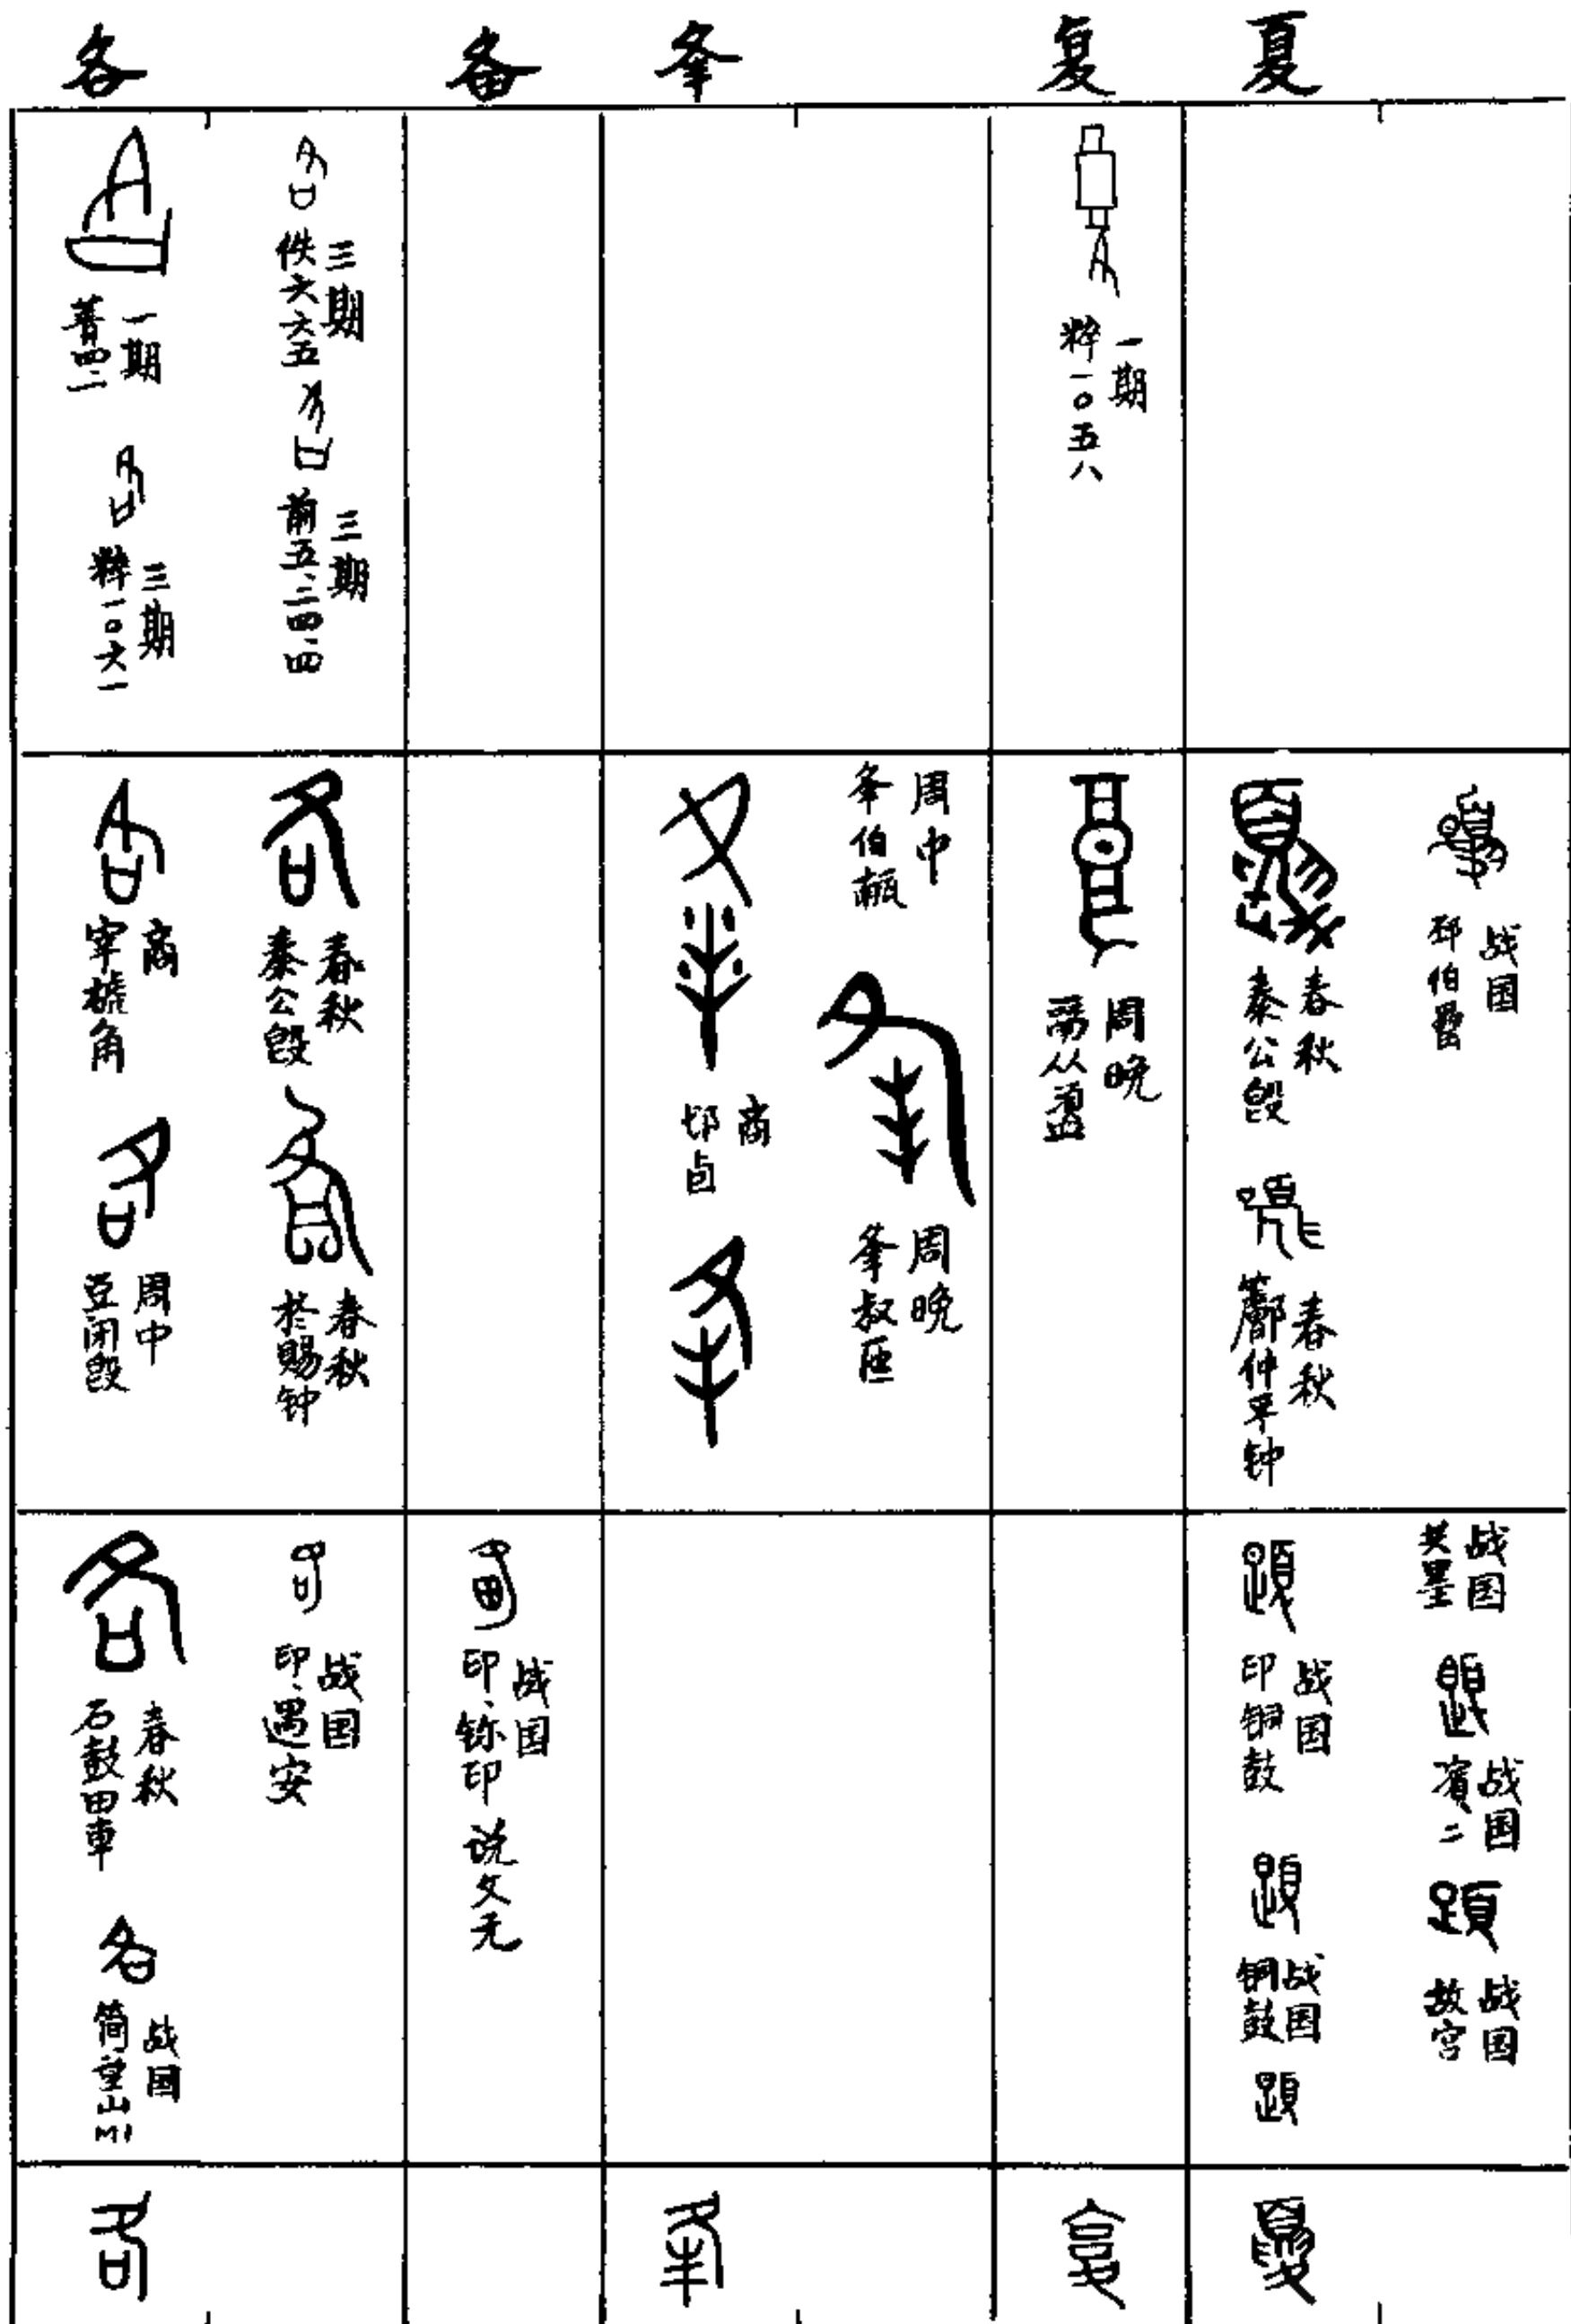 各 备 夆 复 夏
一期
菁四.二
三期
粹一〇六一
三期
佚六六五
三期
前五.二四.四
一期
粹一〇五八
商
宰椃角
周中
豆闭𣪘
春秋
秦公𣪘
春秋
商
周中
夆伯甗
周晚
夆叔匜
周晚
春秋
秦公𣪘
春秋
仲平钟
战国
邳伯罍
春秋
石鼓田車
战国
战国
印.遇安
战国
印.鉨印
说文无
战国
印铜鼓
战国
铜鼓
战国
战国
賓.二
战国
故宫